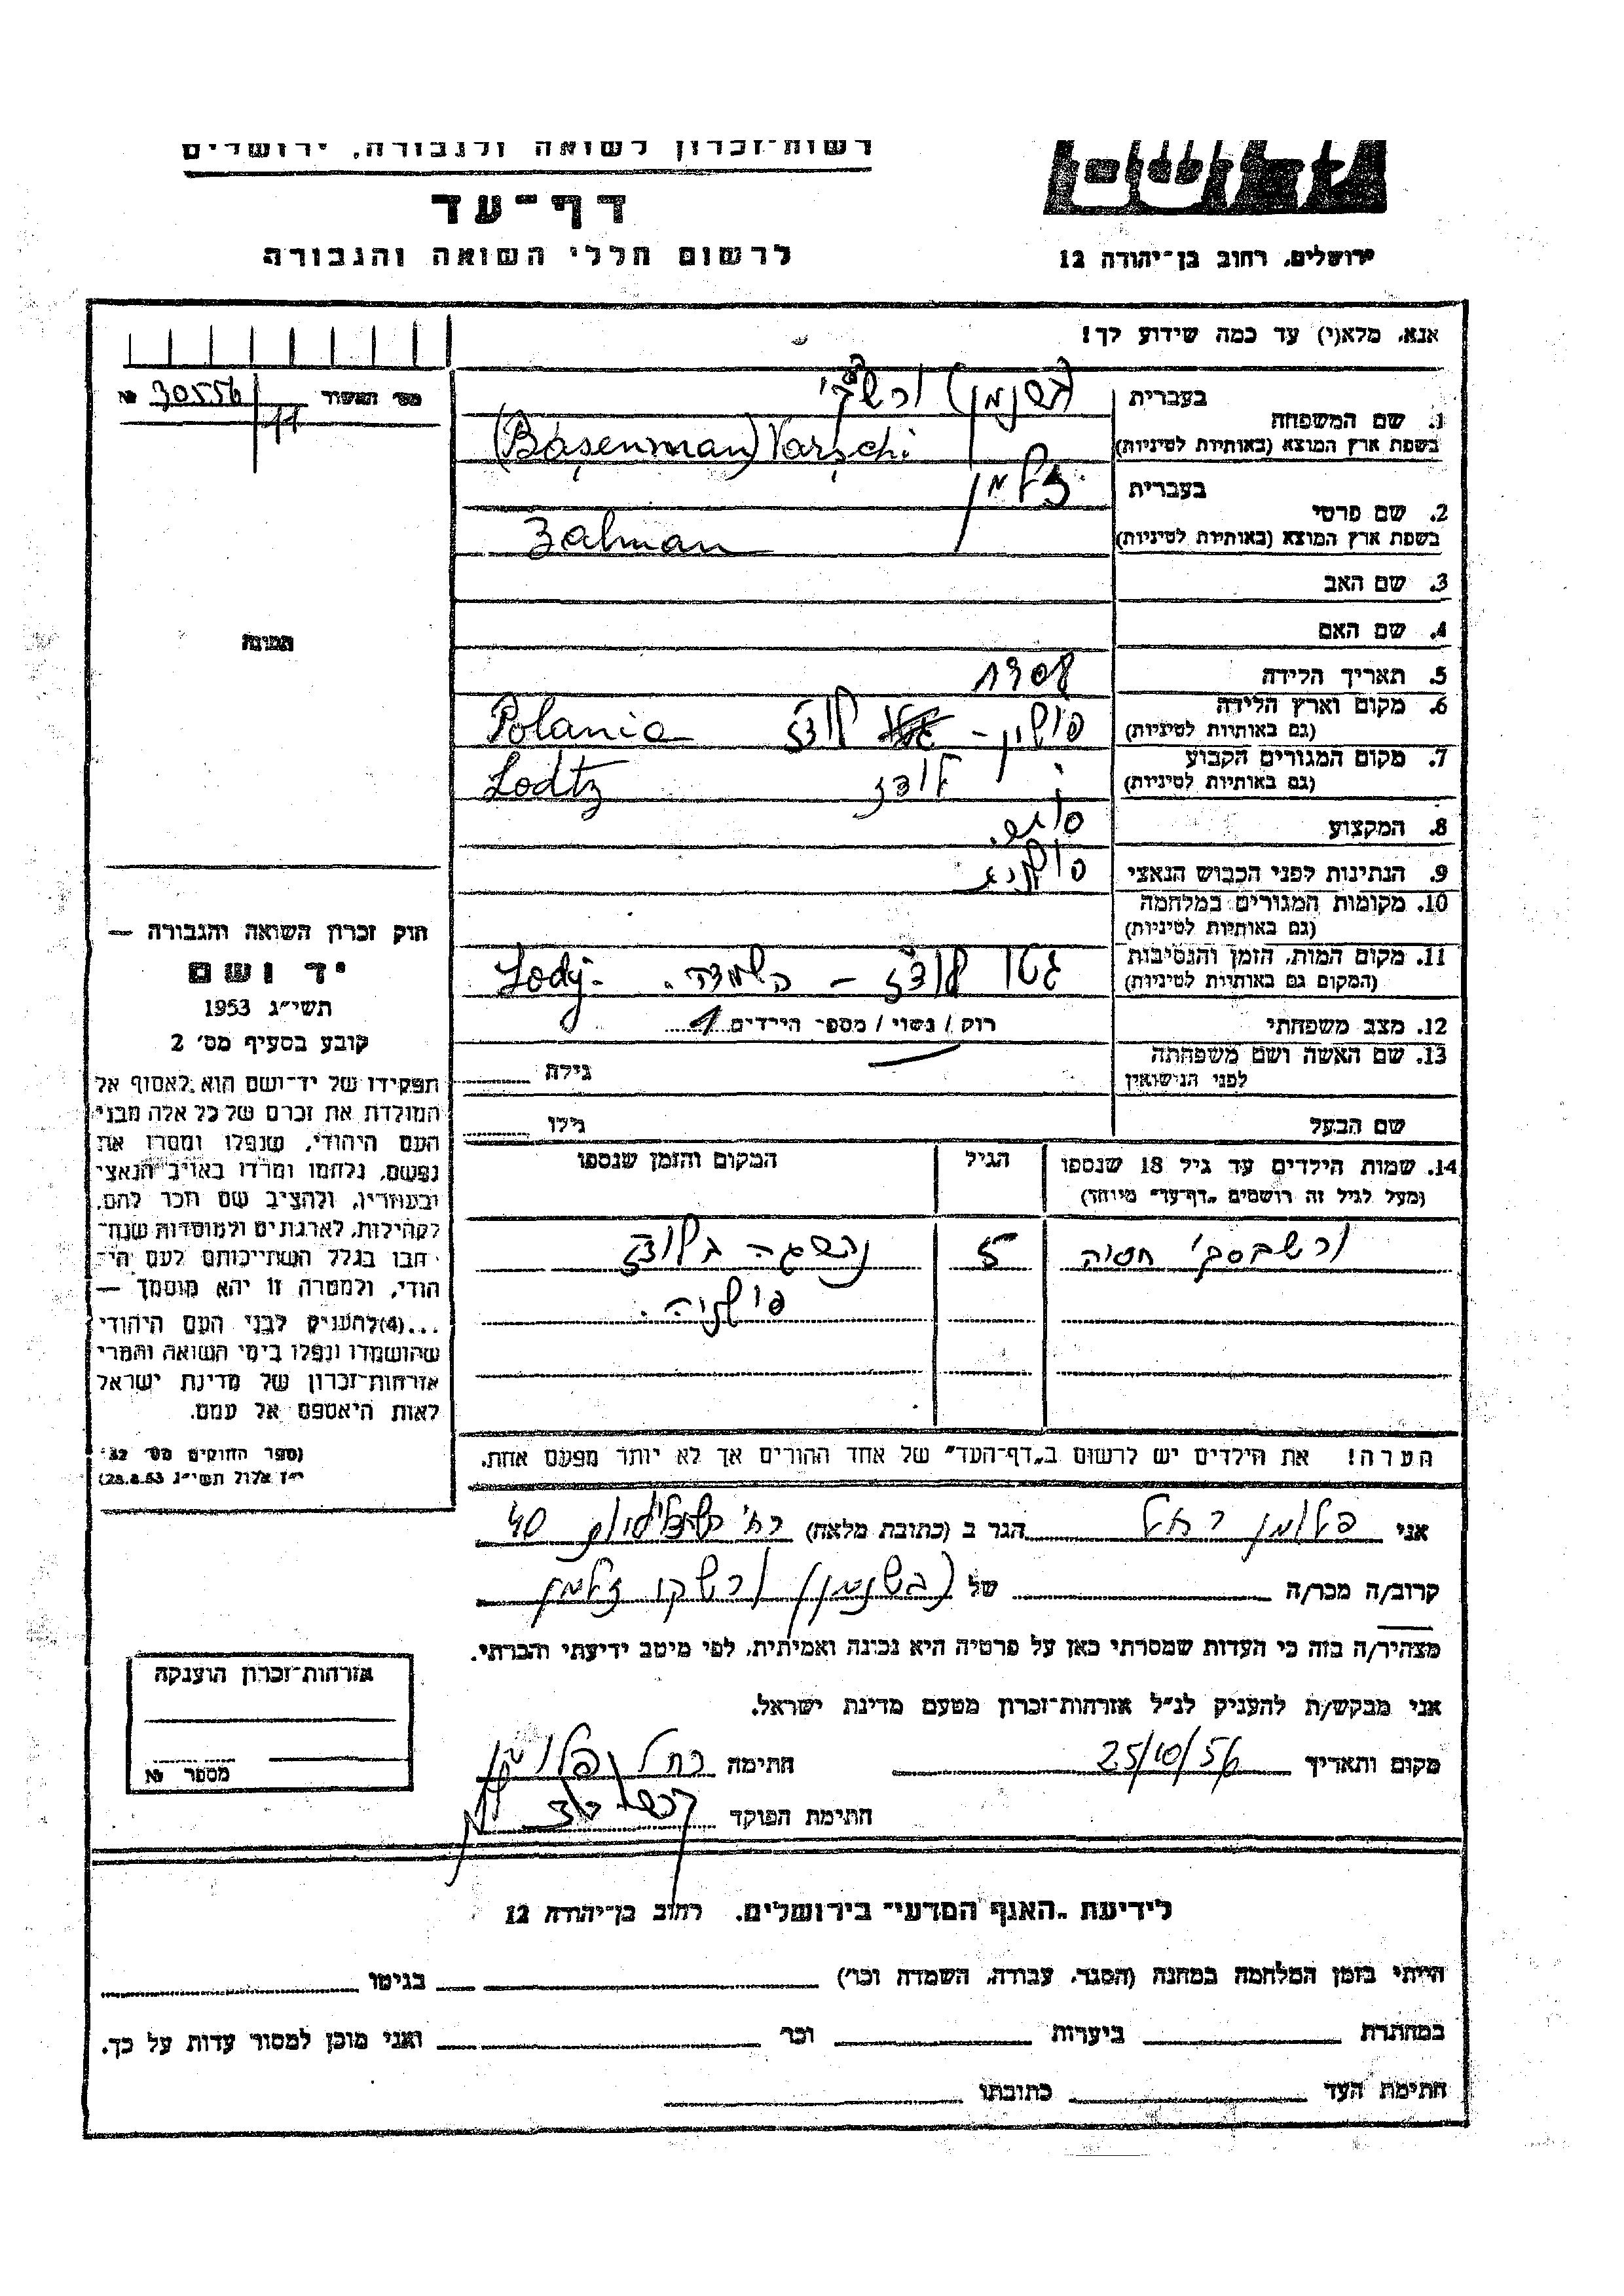 רשות־זכרון לשואה ולגבורה, ירושלים
דף־עד
לרשום חללי השואה והגבורה
ירושלים, רחוב בן־יהודה 12
אנא, מלא(י) עד כמה שידוע לך!
מס' האשור 30556 №
11
1. שם המשפחה
בעברית
בשפת ארץ המוצא (באותיות לטיניות)
(Basenman) Varschi
2. שם פרטי
בעברית זלמן
בשפת ארץ המוצא (באותיות לטיניות)
Zalman
3. שם האב
4. שם האם
5. תאריך הלידה 1908
6. מקום וארץ הלידה פולין - לודז Polania
(גם באותיות לטיניות)
7. מקום המגורים הקבוע לודז Lodtz
(גם באותיות לטיניות)
8. המקצוע
9. הנתינות לפני הכבוש הנאצי פולניה
10. מקומות המגורים במלחמה
(גם באותיות לטיניות)
11. מקום המות, הזמן והנסיבות גטו לודז - השמדה. Lodz-
(המקום גם באותיות לטיניות)
12. מצב משפחתי רוק / נשוי / מספר הילדים 1
13. שם האשה ושם משפחתה גילה
לפני הנישואין
שם הבעל גילו
14. שמות הילדים עד גיל 18 שנספו הגיל המקום והזמן שנספו
(מעל לגיל זה רושמים "דף־עד" מיוחד)
ורשבסקי חסיה 5 בלודז
פולניה.
הערה! את הילדים יש לרשום ב"דף־העד" של אחד ההורים אך לא יותר מפעם אחת.
תמונה
חוק זכרון השואה והגבורה —
יד ושם
תשי"ג 1953
קובע בסעיף מס' 2
תפקידו של יד־ושם הוא לאסוף אל
המולדת את זכרם של כל אלה מבני
העם היהודי, שנפלו ומסרו את
נפשם, נלחמו ומרדו באויב הנאצי
ובעוזריו, ולהציב שם וזכר להם,
לקהילות, לארגונים ולמוסדות שנח־
רבו בגלל השתייכותם לעם הי־
הודי, ולמטרה זו יהא מוסמך —
...(4) להעניק לבני העם היהודי
שהושמדו ונפלו בימי השואה והמרי
אזרחות־זכרון של מדינת ישראל
לאות היאספם אל עמם.
(ספר החוקים מס' 132
י"ז אלול תשי"ג 28.8.53)
אני פלומן רחל הגר ב (כתובת מלאה) רח' 40
קרוב/ה מכר/ה של זלמן
מצהיר/ה בזה כי העדות שמסרתי כאן על פרטיה היא נכונה ואמיתית, לפי מיטב ידיעתי והכרתי.
אני מבקש/ת להעניק לנ"ל אזרחות־זכרון מטעם מדינת ישראל.
מקום ותאריך 25/10/56 חתימה רחל פלומן
חתימת הפוקד
אזרחות־זכרון הוענקה
מספר №
לידיעת "האגף המדעי" בירושלים, רחוב בן־יהודה 12
הייתי בזמן המלחמה במחנה (הסגר, עבודה, השמדה וכו') בגיטו
במחתרת ביערות וכו' ואני מוכן למסור עדות על כך.
חתימת העד כתובתו